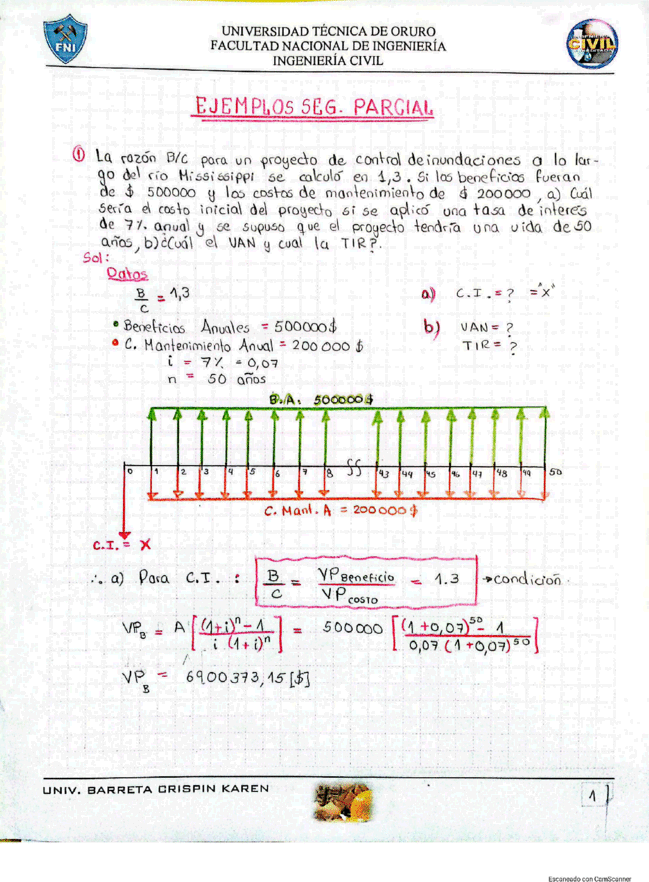 UNIVERSIDAD TÉCNICA DE ORURO
FACULTAD NACIONAL DE INGENIERÍA
INGENIERÍA CIVIL
FNI
CIVIL
EJEMPLOS SEG. PARCIAL
① La razón B/C para un proyecto de control de inundaciones a lo lar-
go del río Mississippi se calculó en 1,3. Si los beneficios fueran
de $ 500000 y los costos de mantenimiento de $ 200000, a) Cuál
sería el costo inicial del proyecto si se aplicó una tasa de interés
de 7% anual y se supuso que el proyecto tendría una vida de 50
años, b) ¿Cuál el VAN y cual la TIR?.
Sol:
Datos
B/C = 1,3
a) C.I. = ? = "x"
• Beneficios Anuales = 500000$
b) VAN = ?
• C. Mantenimiento Anual = 200000 $
TIR = ?
i = 7% = 0,07
n = 50 años
B.A: 500000 $
0 1 2 3 4 5 6 7 8 43 44 45 46 47 48 49 50
C. Mant. A = 200000 $
C.I. = X
∴ a) Para C.I. : B/C = VP Beneficio / VP costo = 1.3 → condición.
VP_B = A [((1+i)^n - 1) / (i (1+i)^n)] = 500000 [((1+0,07)^50 - 1) / (0,07 (1+0,07)^50)]
VP_B = 6900373,15 [$]
UNIV. BARRETA CRISPIN KAREN
1
Escaneado con CamScanner